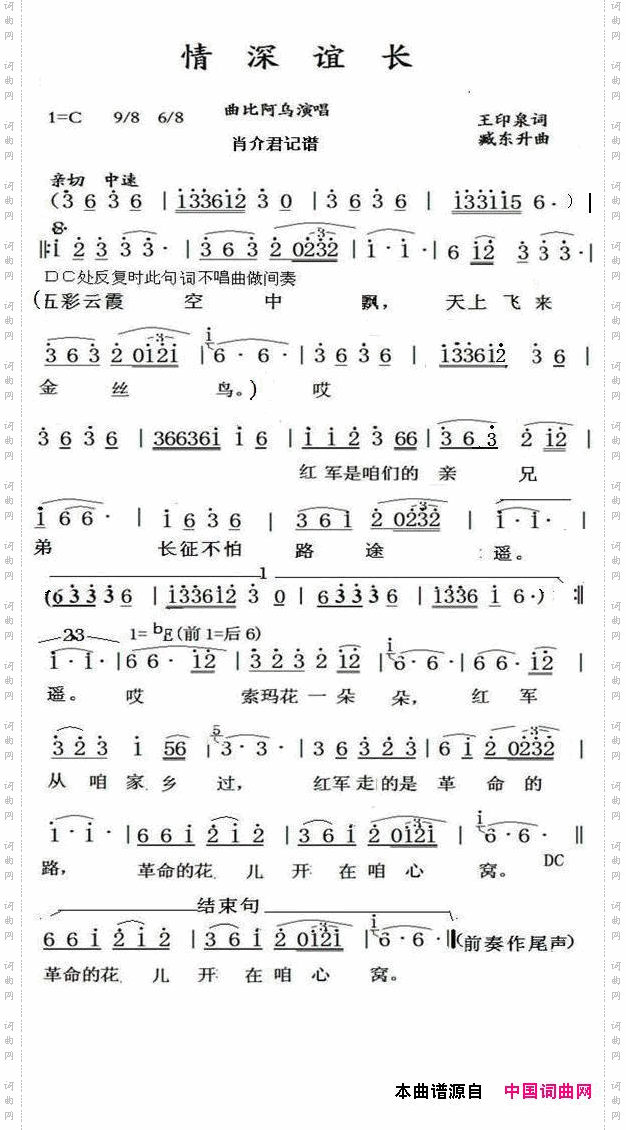 情 深 谊 长
1=C 9/8 6/8 曲比阿乌演唱 王印泉词
肖介君记谱 臧东升曲
亲切 中速
(3 6 3 6 | 133612 3 0 | 3 6 3 6 | 133115 6 · ) |
𝄋
‖: 1 2 3 3 3 · | 3 6 3 2 0232 | 1 · 1 · | 6 12 3 3 3 · |
DC处反复时此句词不唱曲做间奏
(五彩云霞 空 中 飘, 天上飞来
3 6 3 2 0121 | 6 · 6 · | 3 6 3 6 | 133612 3 6 |
金 丝 鸟。) 哎
3 6 3 6 | 366361 1 6 | 1 1 2 3 66 | 3 6 3 2 12 |
红 军是咱们的 亲 兄
1 6 6 · | 1 6 3 6 | 3 6 1 2 0232 | 1 · 1 · |
弟 长征不怕 路 途 遥。
1
(6 3 3 3 6 | 133612 3 0 | 6 3 3 3 6 | 1336 1 6 · ) :‖
23 1=bE(前1=后6)
1 · 1 · | 6 6 · 12 | 3 2 3 2 12 | 6 · 6 · | 6 6 · 12 |
遥。 哎 索玛花一朵 朵, 红 军
3 2 3 1 56 | 3 · 3 · | 3 6 3 2 3 | 6 1 2 0232 |
从 咱 家 乡 过, 红军走的是 革 命 的
1 · 1 · | 6 6 1 2 1 2 | 3 6 1 2 0121 | 6 · 6 · ‖
路, 革命的花 儿 开 在 咱 心 窝。 DC
结束句
6 6 1 2 1 2 | 3 6 1 2 0121 | 6 · 6 · ‖(前奏作尾声)
革命的花 儿 开 在 咱 心 窝。
本曲谱源自 中国词曲网